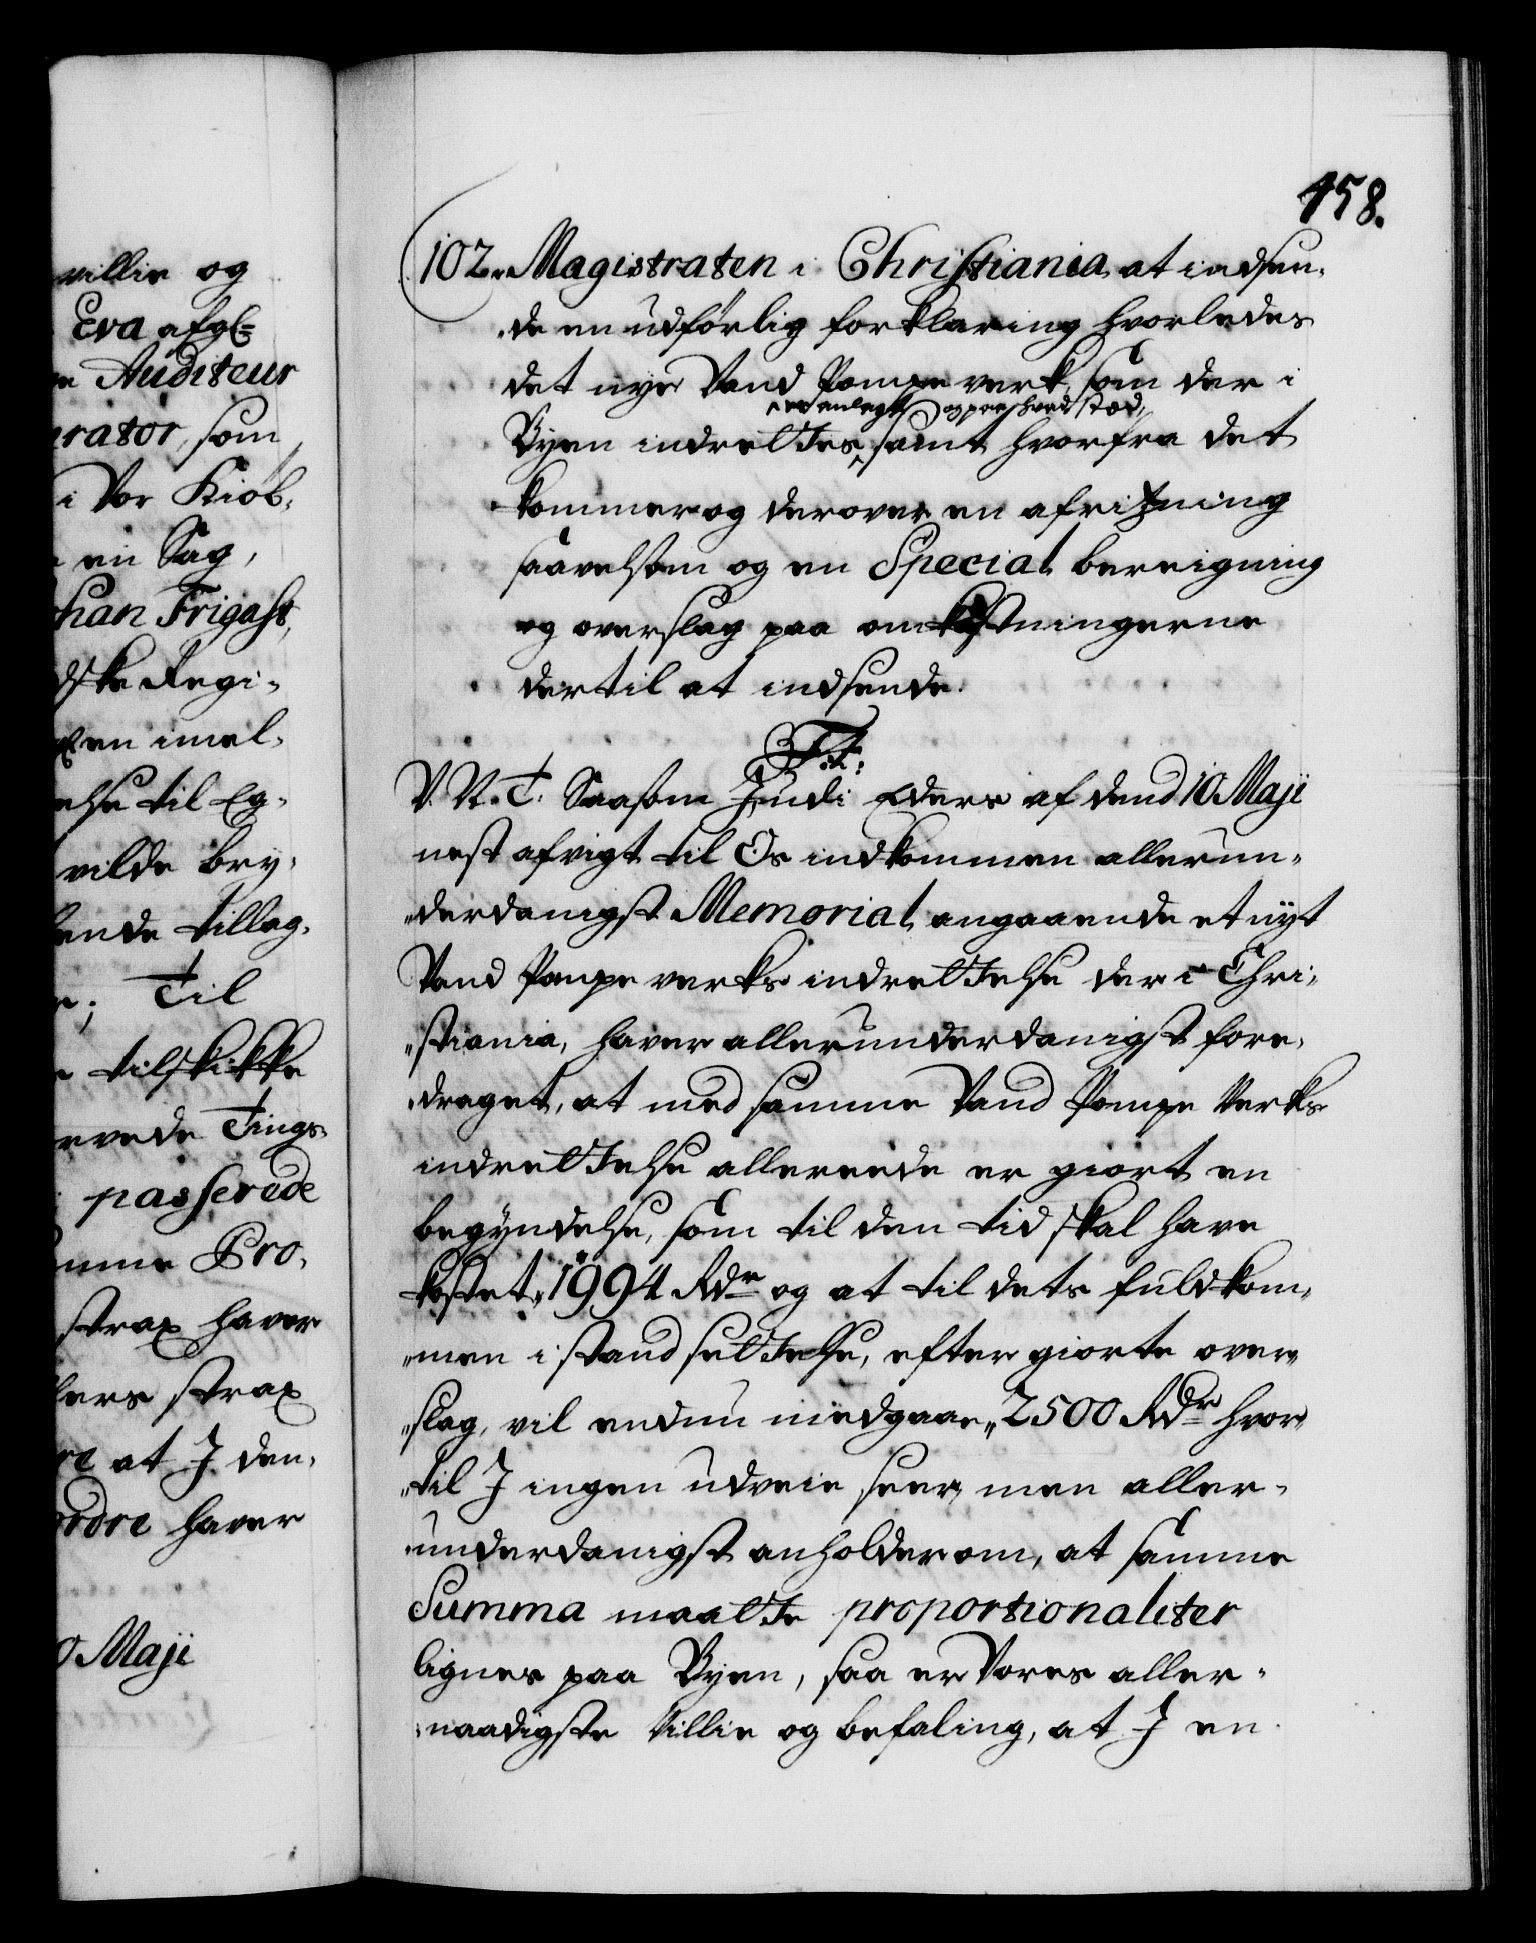 villie og
Eva afgl=
Auditeur
rator, som
i Vor Kiøb,
en Sag,
han Frigast,
dske Regi-
en imel,
else til Eg-
vilde bry,
ende tillag,
Til
tilskikke
rvede Tings,
passerede
mme Pro,
strax haver
lers strax
re at J den,
ordre haver
0 Maji
158.
102. Magistraten i Christiania at indsen,
de en udførlig forklaring hvorledes
det nye Vand Pompe verk, som der i
er anlegt og paa hvad stæd,
Byen indrettes, samt hvorfra det
kommer og derover en afridzning
saavelsom og en Special bereigning
og overslag paa omkostningerne
dertil at indsende.
F. 4:
V. N. T. Saasom Judi Eders af dend 10 Maji
nest afvigt til Os indkommen allerun,
derdanigst Memorial angaaende et nyt
Vand Pompe verks indrettelse der i Chri,
stiania, haver allerunderdanigst fore,
draget, at med samme Vand Pompe Verks
indrettelse allereede er giort en
begyndelse, som til den tid skal have
kostet 1994 Rdr og at til dets fuldkom,
men i stand settelse, efter giorte over,
slag, vil endnu medgaae 2500 Rdr hvor,
til J ingen udveie seer, men aller-
underdanigst anholder om, at samme
Summa maatte proportionaliter
lignes paa Byen, saa er Vores aller-
naadigste Villie og befaling, at J en